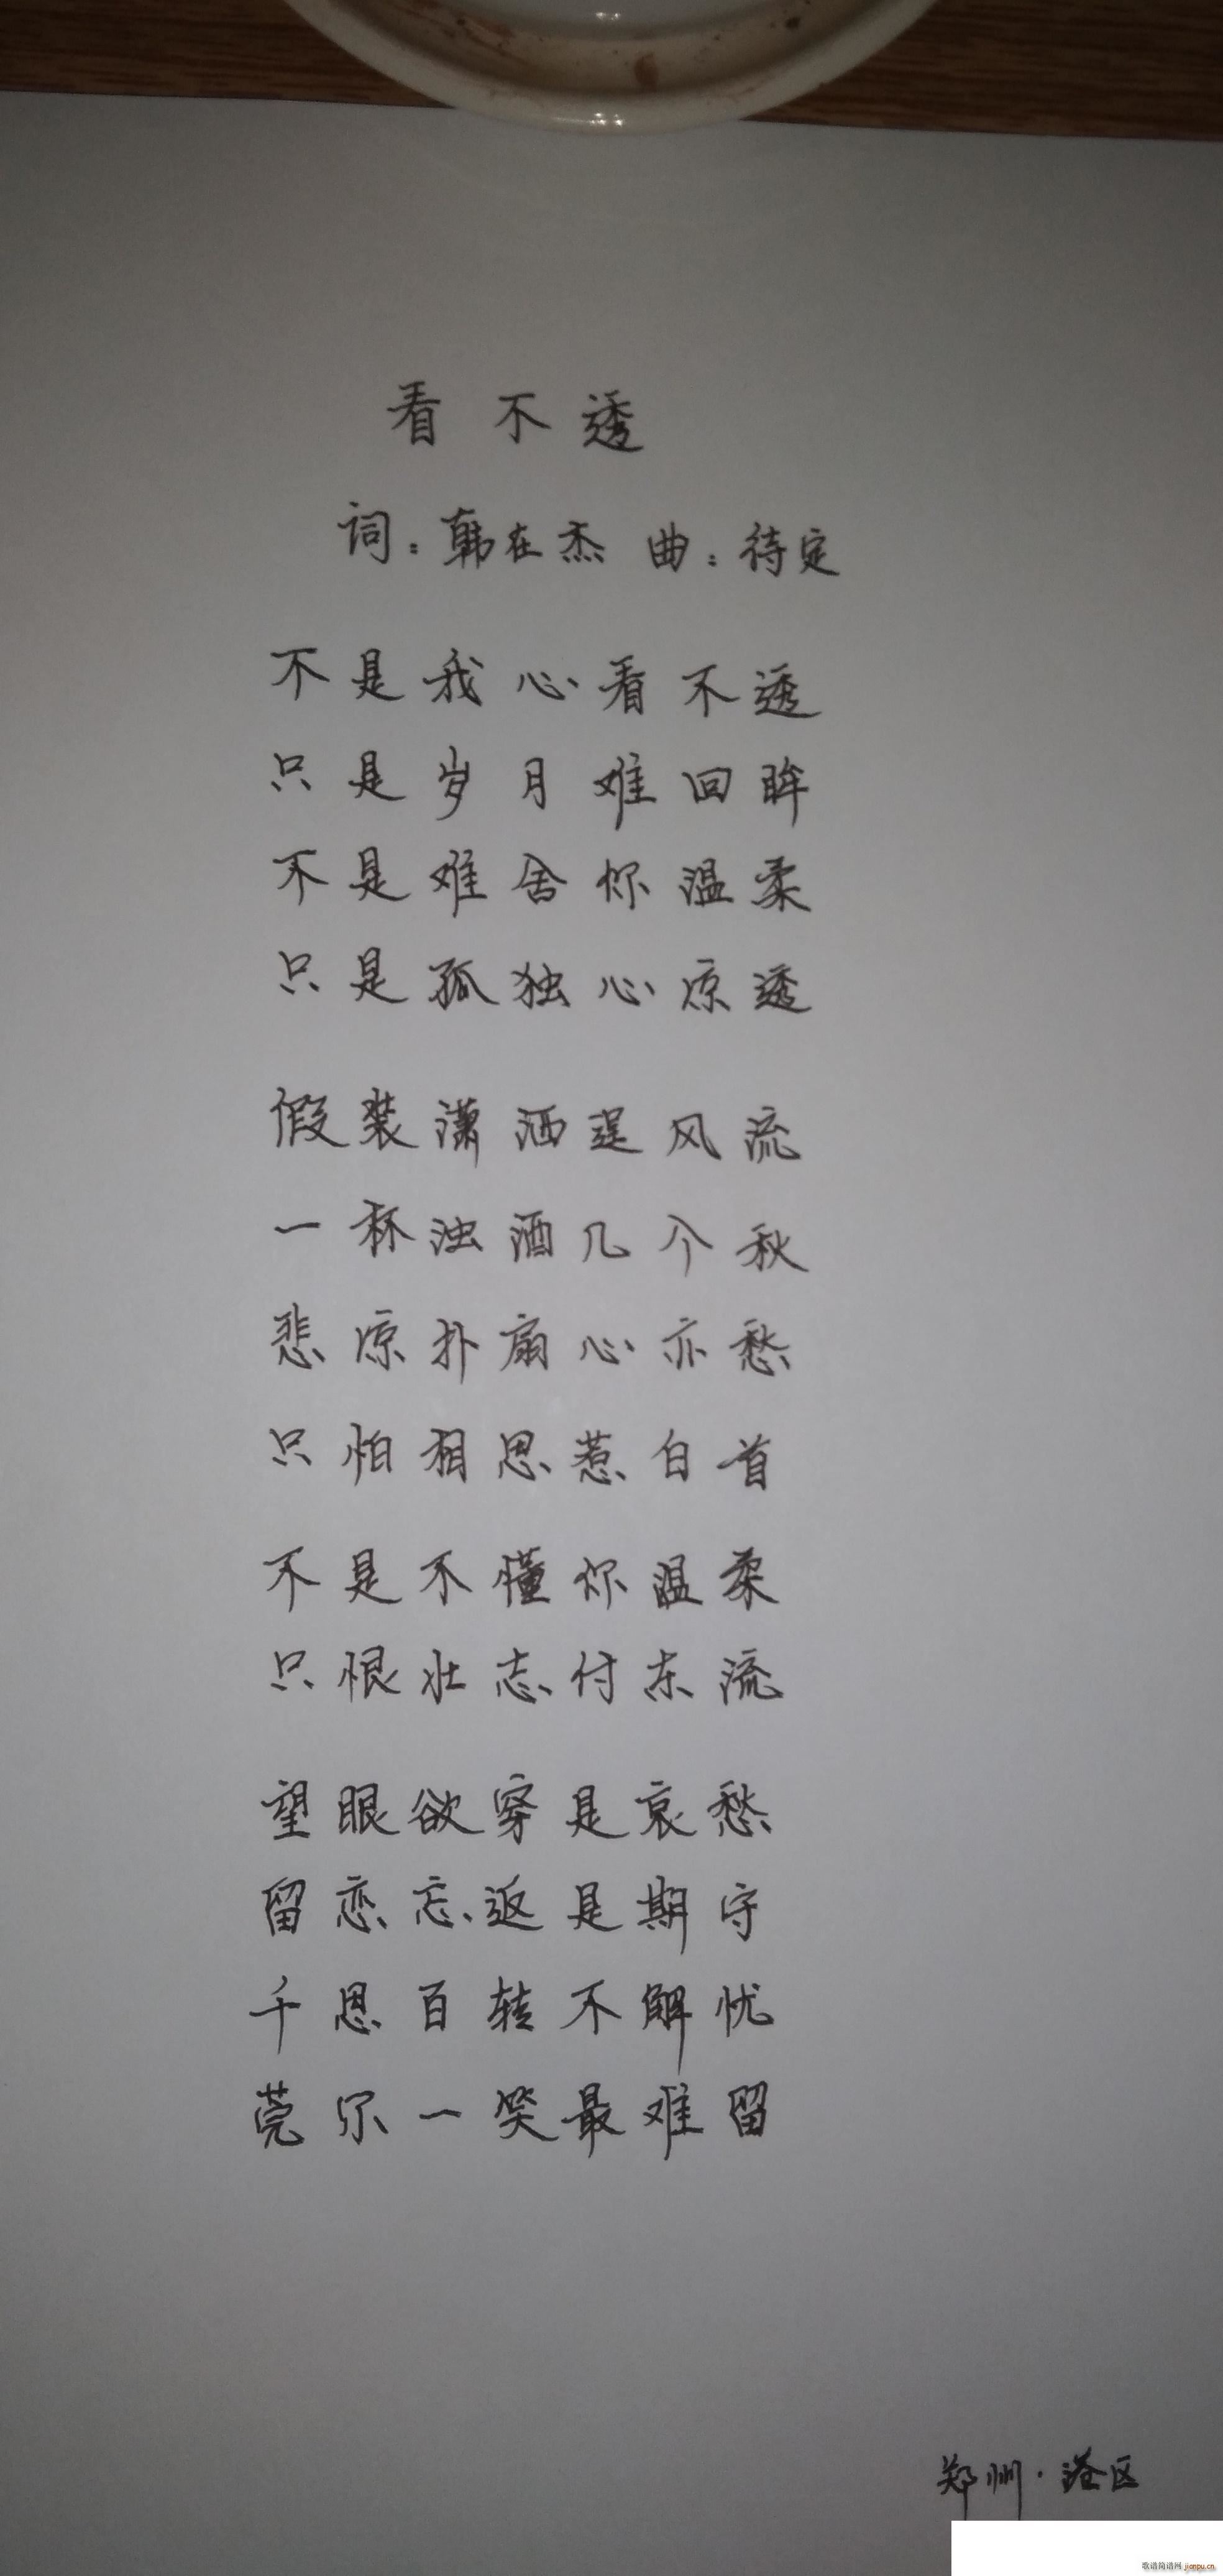 看不透
词：韩在杰 曲：待定
不是我心看不透
只是岁月难回眸
不是难舍你温柔
只是孤独心凉透
假装潇洒逞风流
一杯浊酒几个秋
悲凉扑扇心亦愁
只怕相思惹白首
不是不懂你温柔
只恨壮志付东流
望眼欲穿是哀愁
留恋忘返是期守
千思百转不解忧
莞尔一笑最难留
郑州·港区
歌谱简谱网 jianpu.cn